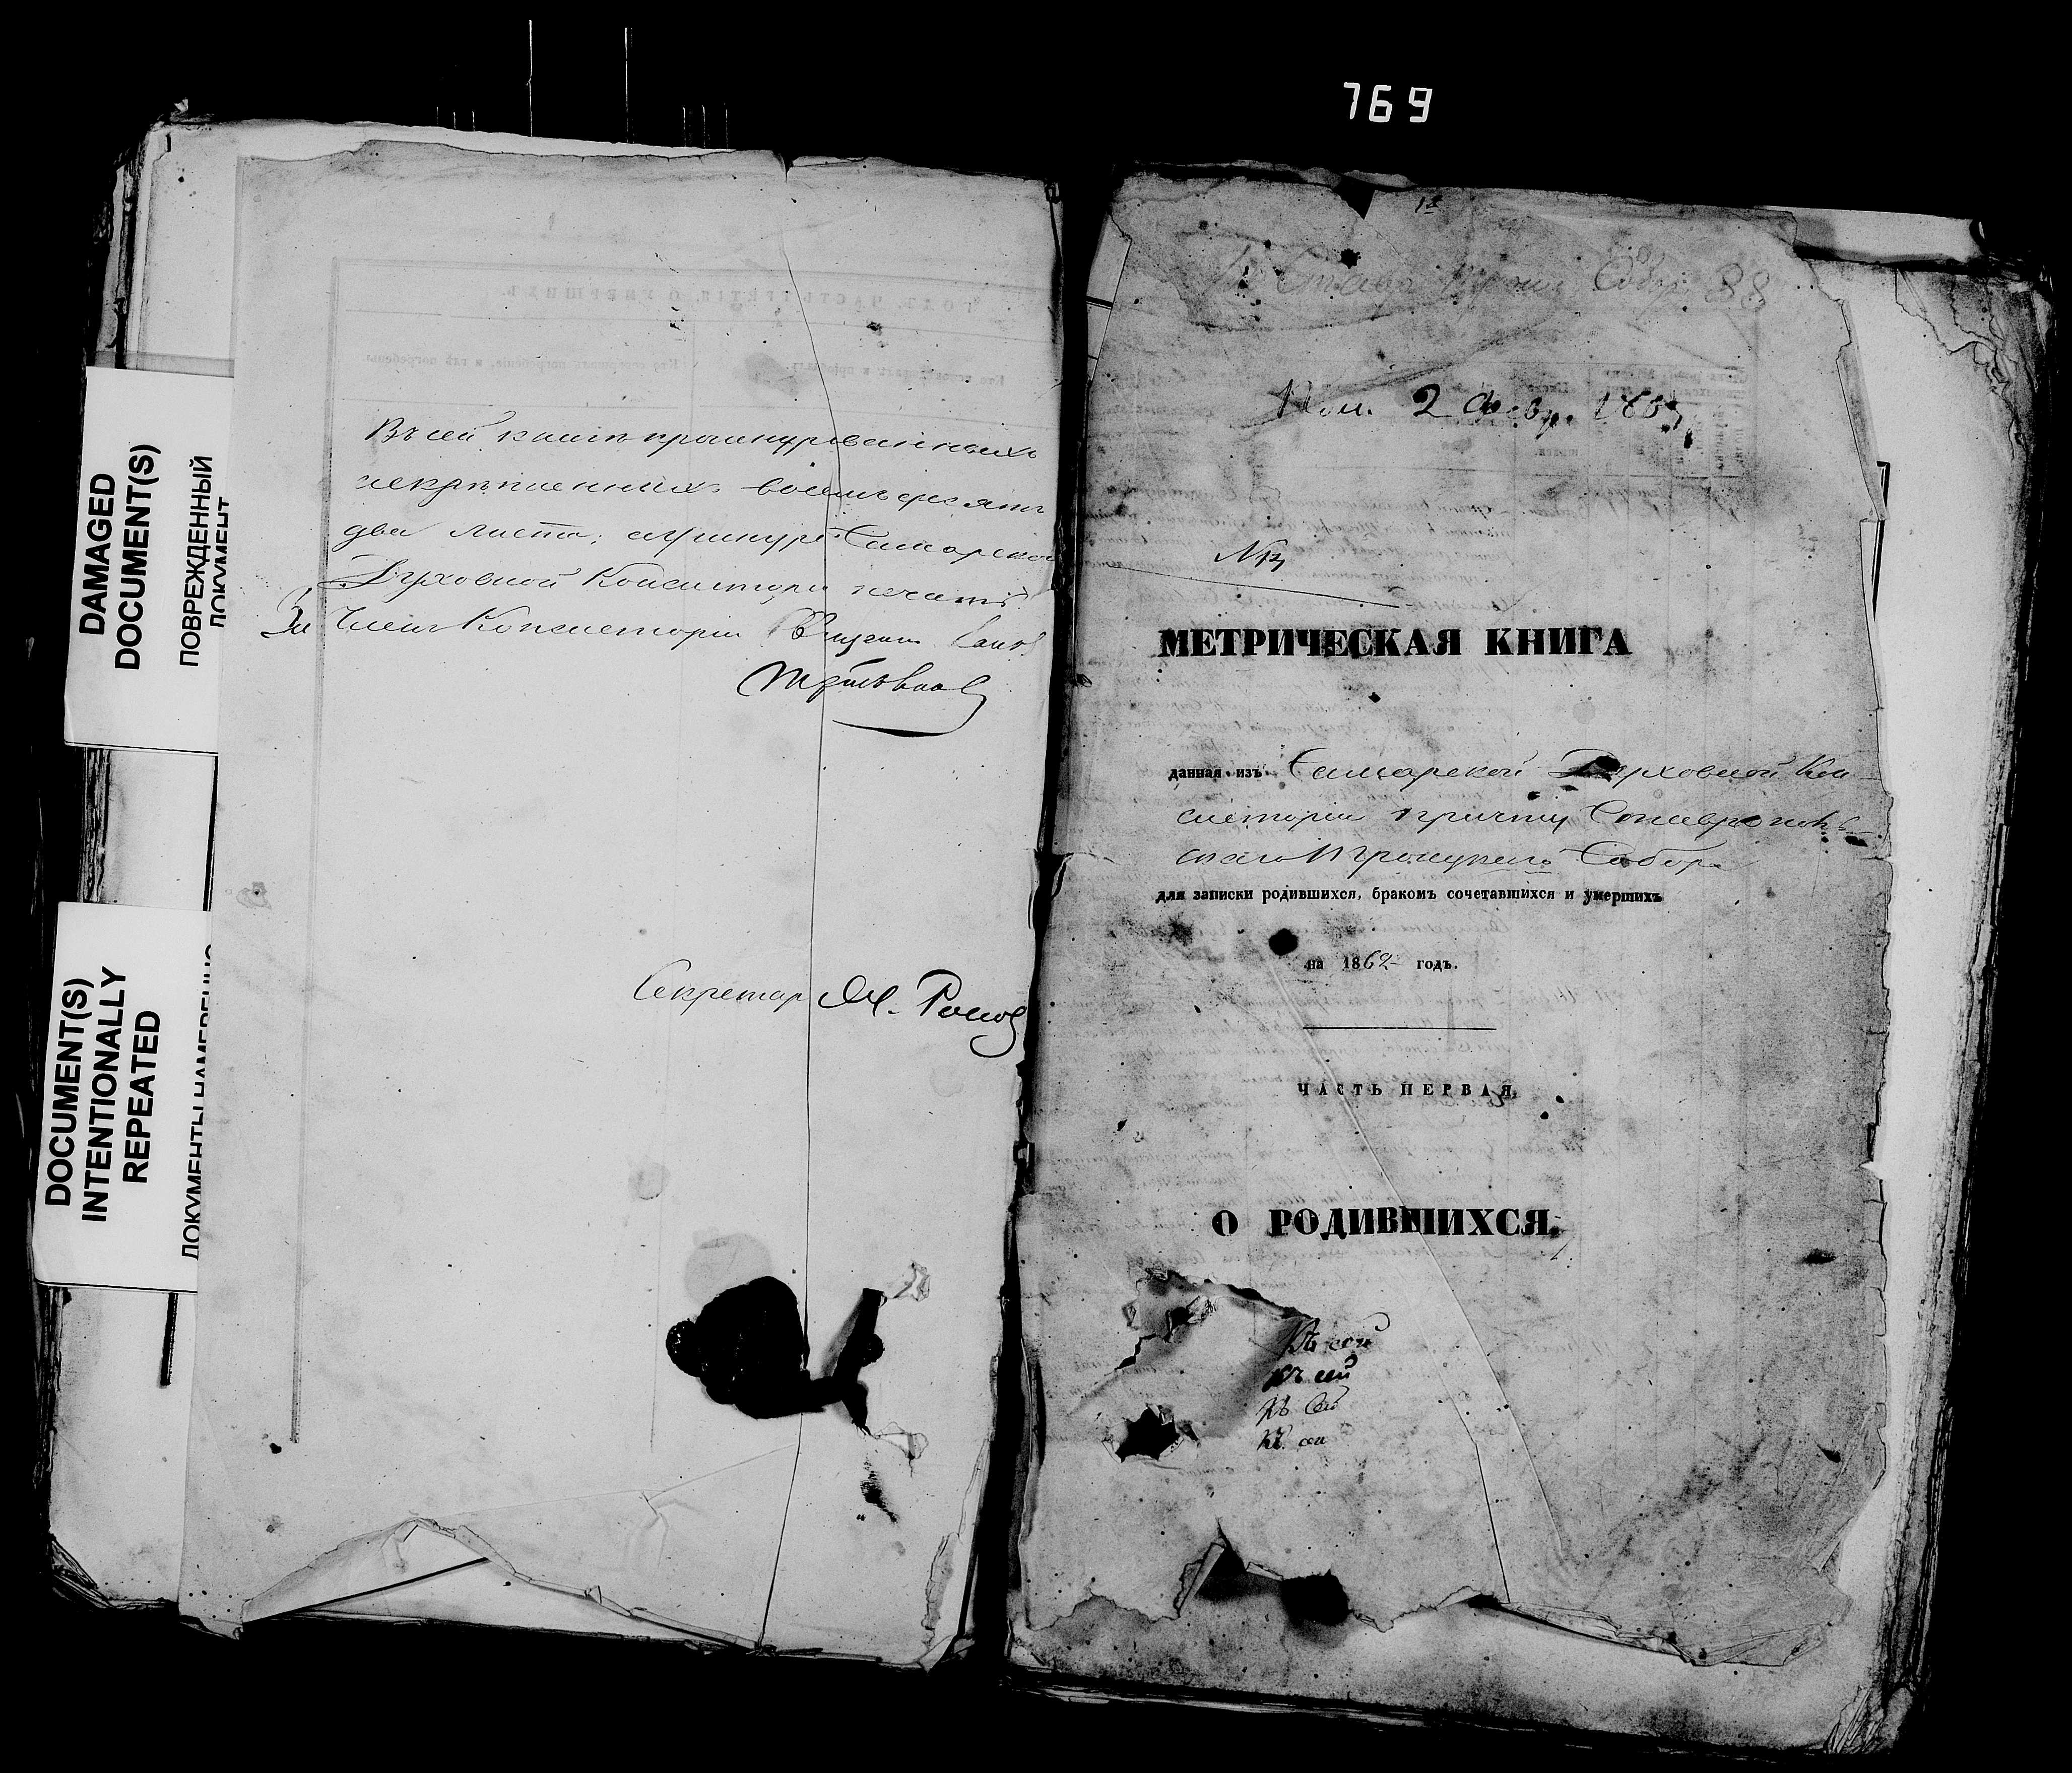 769
DAMAGED
DOCUMENT(S)
ПОВРЕЖДЕННЫЙ
ДОКУМЕНТ
DOCUMENT(S)
INTENTIONALLY
REPEATED
ДОКУМЕНТЫ НАМЕРЕННО
Въ сей книгѣ прошнурованныхъ
и скрѣпленныхъ восемьдесятъ
два листа, и шнуръ Самарской
Духовной Консисторіи печать
За Члена Консисторіи
Секретар М. Попов
88
Пол. 2 Февр. 1863
МЕТРИЧЕСКАЯ КНИГА
данная изъ Самарской Духовной Кон-
систоріи причту Ставрополь-
скаго Троицкаго Собора
для записки родившихся, бракомъ сочетавшихся и умершихъ
на 1862 годъ.
ЧАСТЬ ПЕРВАЯ,
О РОДИВШИХСЯ.
Къ сей
Къ сей
Къ сей
Къ сей